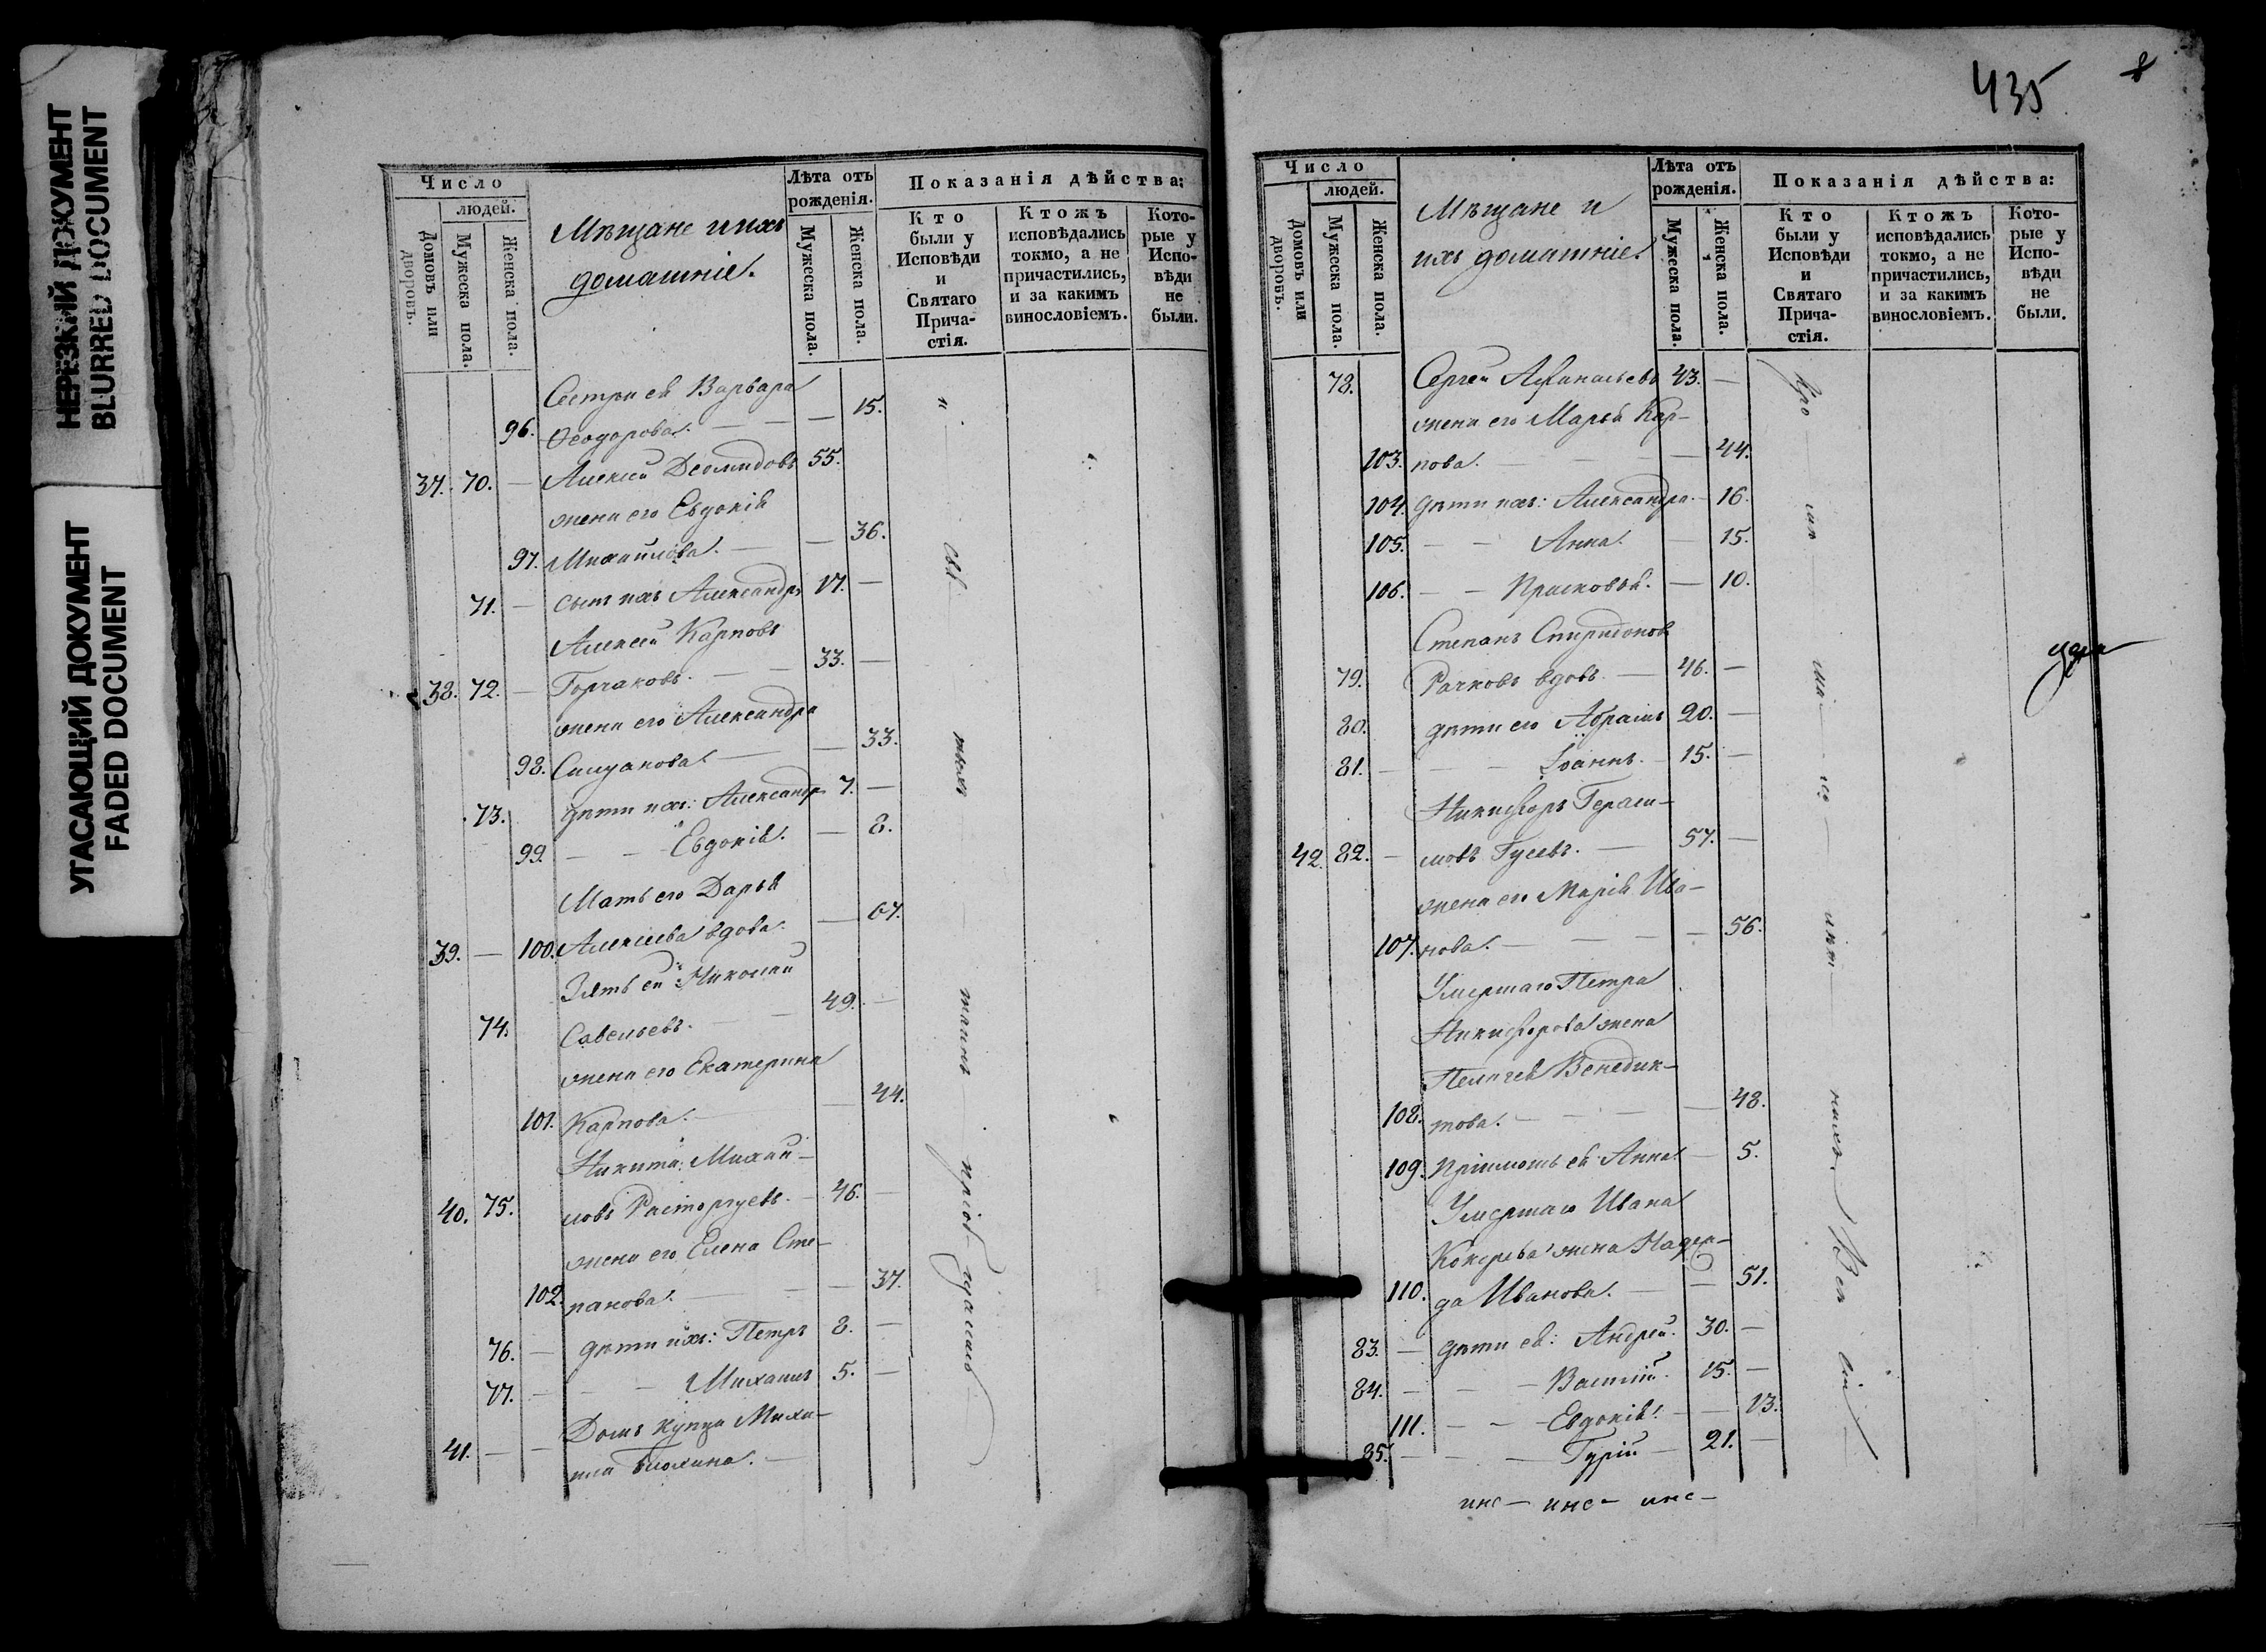 НЕРЕЗКИЙ ДОКУМЕНТ
BLURRED DOCUMENT
УГАСАЮЩИЙ ДОКУМЕНТ
FADED DOCUMENT
Число
людей.
Домовъ или дворовъ.
Мужеска пола.
Женска пола.
Мѣщане и ихъ
домашніе.
Лѣта отъ
рожденія.
Мужеска пола.
Женска пола.
Показанія дѣйства:
Кто
были у
Исповѣди
и
Святаго
Прича-
стія.
Ктожъ
исповѣдались
токмо, а не
причастились,
и за какимъ
винословіемъ.
Кото-
рые у
Испо-
вѣди
не
были.
Сестра ея Варвара
96. Ѳеодорова. — — — 15.
37. 70. — Алексей Деомидовъ 55.
жена его Евдокія
97. Михайлова. — — 36.
71. — сынъ ихъ Александръ 17. —
Алексей Карповъ
38. 72. — Горчаковъ. — — 33. —
жена его Александра
98. — — 33.
73. дѣти ихъ: Александръ 7. —
99. — — Евдокія. — 8.
Мать его Дарья
39. — 100. Алексеева вдова. — 67.
Зять ея Николай
74. Савельевъ. — — 49. —
жена его Екатерина
101. Карпова. — — 44.
Никита Михай-
40. 75. ловъ Расторгуевъ. — 46. —
жена его Елена Сте-
102. панова. — — — 37.
76. — дѣти ихъ: Петръ 8. —
77. — — — Михаилъ 5. —
Домъ купца Миха-
41. — — ила Блохина. —
435
Число
людей.
Домовъ или дворовъ.
Мужеска пола.
Женска пола.
Мѣщане и
ихъ домашніе.
Лѣта отъ
рожденія.
Мужеска пола.
Женска пола.
Показанія дѣйства:
Кто
были у
Исповѣди
и
Святаго
Прича-
стія.
Ктожъ
исповѣдались
токмо, а не
причастились,
и за какимъ
винословіемъ.
Кото-
рые у
Испо-
вѣди
не
были.
78. Сергей Афанасьевъ 43. —
жена его Марья Кар-
103. пова. — — — 44.
104. дѣти ихъ: Александра. — 16.
105. — — Анна. — 15.
106. — — Прасковья. — 10.
Степанъ Спиридоновъ
79. Рачковъ вдовъ. — 46. —
80. дѣти его Абрамъ 20. —
81. — — — Іоаннъ. — 15. —
Никифоръ Гераси-
42. 82. — мовъ Гусевъ. — 57. —
жена его Марія Ива-
107. нова. — — — — 56.
Умершаго Петра
Никифорова жена
Пелагея Венедик-
108. това. — — — — 48.
109. Пріимошъ ея Анна. — 5.
Умершаго Ивана
жена Надеж-
110. да Иванова. — — 51.
83. — дѣти ея: Андрей. 30. —
84. — — — Василій. 15. —
111. — — Евдокія. — — 13.
85. — — — Гурій — 21. —